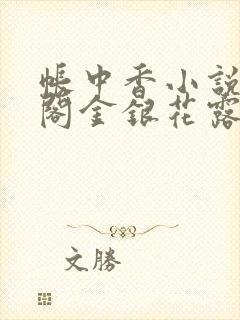 帳中香小說
閣金銀花露
文勝